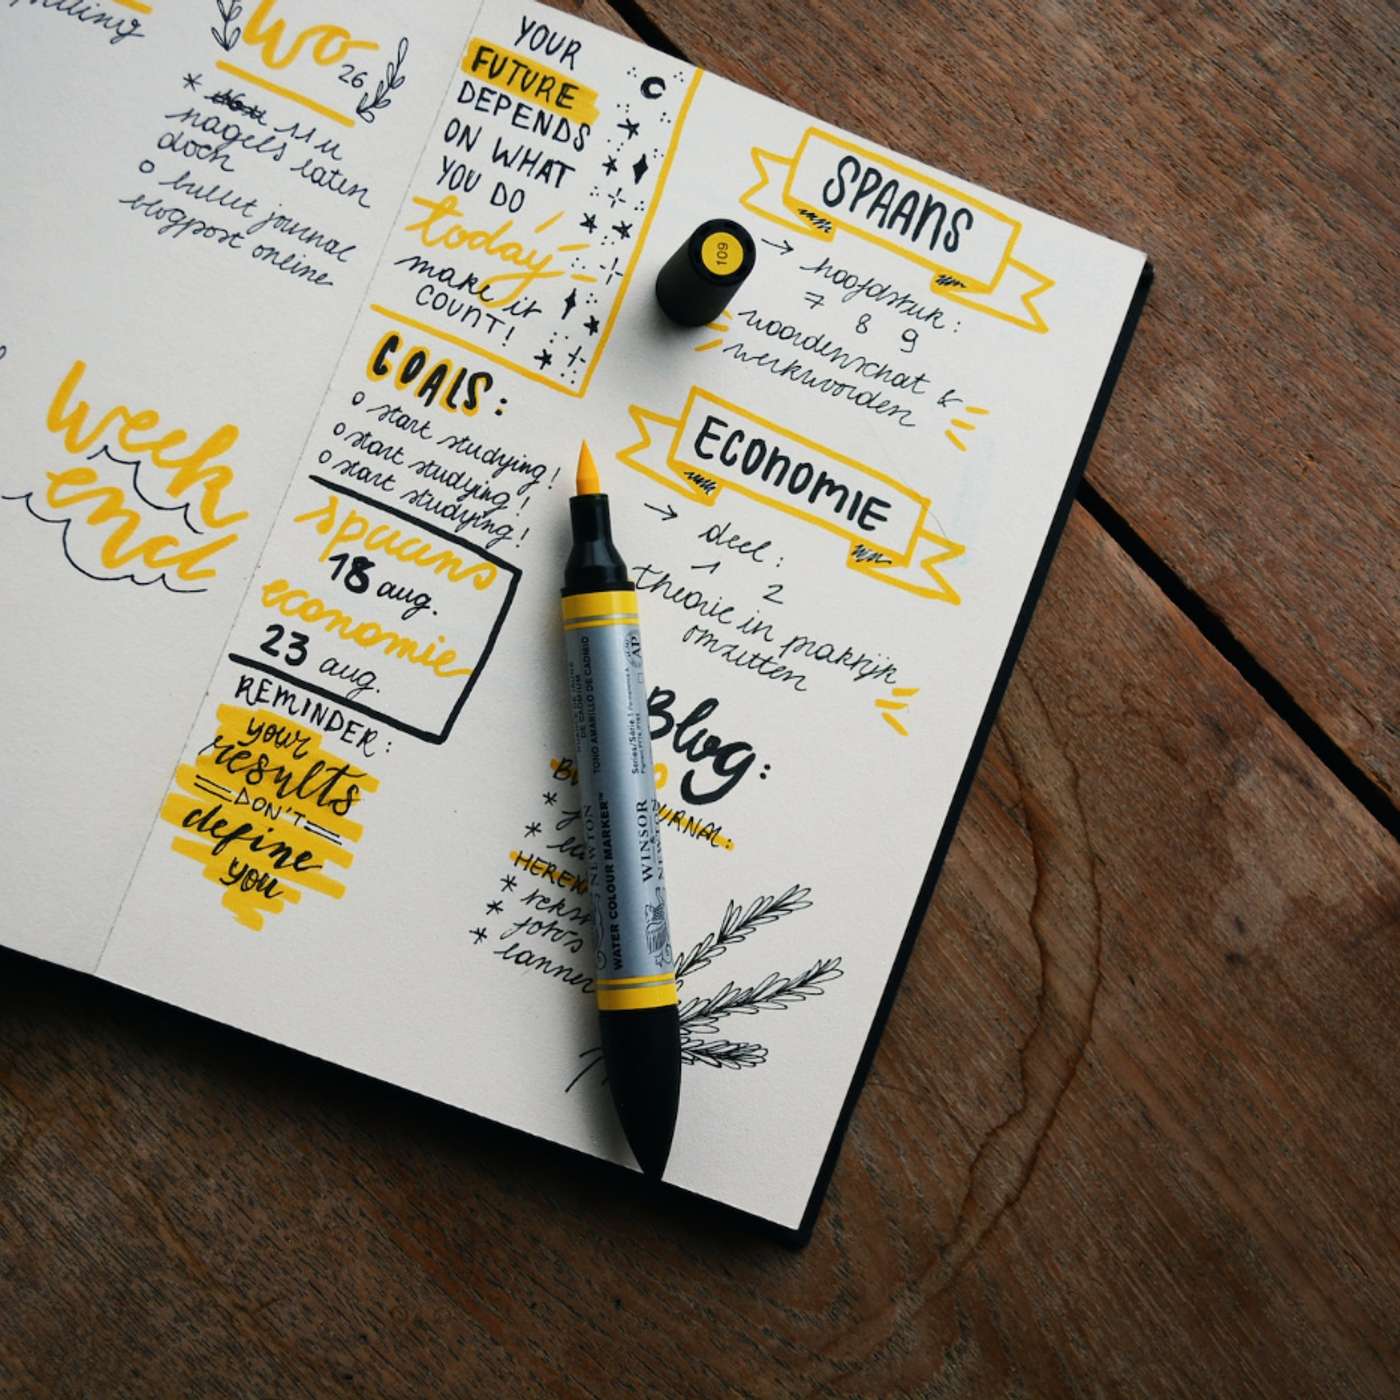 Wo
26
* 11 u
nagels laten
doen
o bullet journal
blogpost online
week
end
YOUR
FUTURE
DEPENDS
ON WHAT
YOU DO
today
make it
COUNT!
GOALS:
o start studying!
o start studying!
o start studying!
spaans
18 aug.
economie
23 aug.
REMINDER:
your
results
DON'T
define
you
SPAANS
→ hoofdstuk:
7 8 9
woordenschat &
werkwoorden
ECONOMIE
→ deel:
1 2
theorie in praktijk
omzetten
Blog:
URNAL:
*
*
HEREN
* tekst
* foto's
*
109
TONO AMARILLO DE CADMIO
DE CADMIUM
Series/Série 1
AP
WINSOR
& NEWTON
WATER COLOUR MARKER™
NEWTON